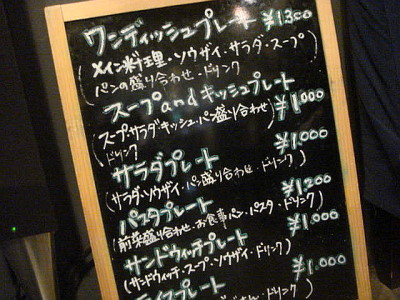 ワンディッシュプレート ¥1300
(メイン料理・ソウザイ・サラダ・スープ
パンの盛り合わせ・ドリンク)
スープandキッシュプレート ¥1.000
(スープ・サラダ・キッシュ・パン盛り合わせ
ドリンク)
サラダプレート ¥1.000
(サラダ・ソウザイ・パン盛り合わせ・ドリンク)
パスタプレート ¥1200
(前菜盛り合わせ・お食事パン・パスタ・ドリンク)
サンドウィッチプレート ¥1.000
(サンドウィッチ・スープ・ソウザイ・ドリンク)
プレート ¥1.000
ドリンク)